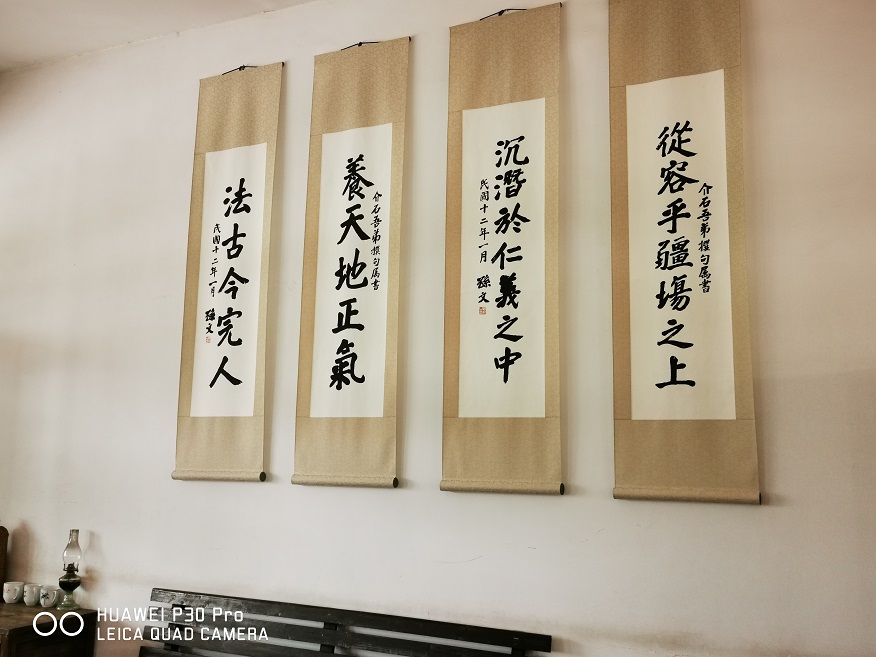 從容乎疆場之上
介石吾弟撰句屬書
沉潛於仁義之中
民國十二年一月 孫文
養天地正氣
介石吾弟撰句屬書
法古今完人
民國十二年一月 孫文
HUAWEI P30 Pro
LEICA QUAD CAMERA